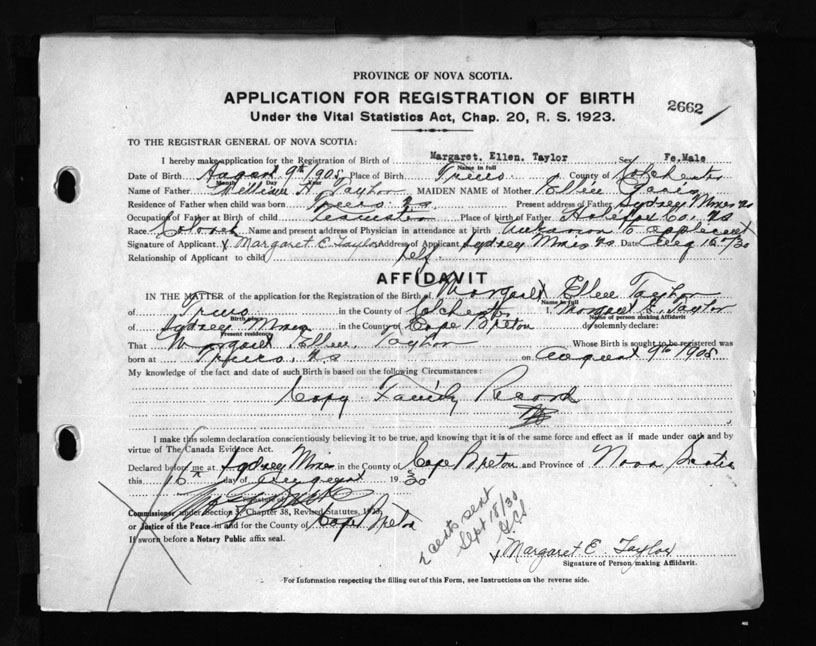 PROVINCE OF NOVA SCOTIA.
APPLICATION FOR REGISTRATION OF BIRTH
2662
Under the Vital Statistics Act, Chap. 20, R. S. 1923.
TO THE REGISTRAR GENERAL OF NOVA SCOTIA:
I hereby make application for the Registration of Birth of Margaret. Ellen. Taylor Sex Fe.Male
Name in full
Date of Birth August 9th 1905 Place of Birth Truro. County of Colchester
Month Day Year
Name of Father William H Taylor MAIDEN NAME of Mother Ellie Davis
Residence of Father when child was born Truro N.S Present address of Father Sydney Mines NS
Occupation of Father at Birth of child Teamster Place of birth of Father Halifax Co. NS
Race Colored Name and present address of Physician in attendance at birth unknown to applicant
Signature of Applicant x Margaret E. Taylor Address of Applicant Sydney Mines NS Date Aug 16th/30
Relationship of Applicant to child self
AFFIDAVIT
IN THE MATTER of the application for the Registration of the Birth of Margaret Ellen Taylor
Name in full
of Truro in the County of Colchester I, Margaret E. Taylor
Birth place Name of person making Affidavit
of Sydney Mines in the County of Cape Breton do solemnly declare:
Present residence
That Margaret Ellen Taylor Whose Birth is sought to be registered was
born at Truro. N.S on August 9th 1905
My knowledge of the fact and date of such Birth is based on the following Circumstances:
Copy Family Record
I make this solemn declaration conscientiously believing it to be true, and knowing that it is of the same force and effect as if made under oath and by
virtue of The Canada Evidence Act.
Declared before me at Sydney Mines in the County of Cape Breton and Province of Nova Scotia
this 16th day of August 1930
Signature of
Commissioner under Section 3, Chapter 38, Revised Statutes, 1923,
or Justice of the Peace in and for the County of Cape Breton
If sworn before a Notary Public affix seal.
2 certs sent
Sept 18/30
x Margaret E. Taylor
Signature of Person making Affidavit.
For Information respecting the filling out of this Form, see Instructions on the reverse side.